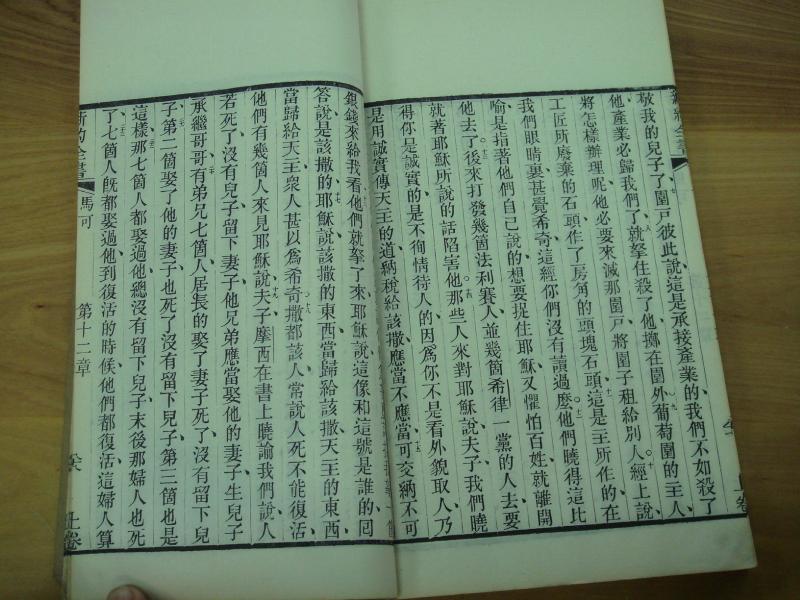 敬我的兒子了園戸彼此說這是承接產業的我們不如殺了
他產業必歸我們了就拏住殺了他擲在園外葡萄園的主人
將怎樣辦理呢他必要來滅那園戸將園子租給別人經上說
工匠所廢棄的石頭作了房角的頭塊石頭這是主所作的在
我們眼睛裏甚覺希奇這經你們沒有讀過麼他們曉得這比
喻是指著他們自己說的想要捉住耶穌又懼怕百姓就離開
他去了後來打發幾箇法利賽人並幾箇希律一黨的人去要
就著耶穌所說的話陷害他那些人來對耶穌說夫子我們曉
得你是誠實的是不徇情待人的因為你不是看外貌取人乃
是用誠實傳天主的道納稅給該撒應當不應當可交納不可
上卷
銀錢來給我看他們就拏了來耶穌說這像和這號是誰的回
答說是該撒的耶穌說該撒的東西當歸給該撒天主的東西
當歸給天主眾人甚以為希奇撒都該人常說人死不能復活
他們有幾箇人來見耶穌說夫子摩西在書上曉諭我們說人
若死了沒有兒子留下妻子他兄弟應當娶他的妻子生兒子
承繼哥哥有弟兄七箇人居長的娶了妻子死了沒有留下兒
子第二箇娶了他的妻子也死了沒有留下兒子第三箇也是
這樣那七箇人都娶過他總沒有留下兒子末後那婦人也死
了七箇人既都娶過他到復活的時候他們都復活這婦人算
新約全書 馬可 第十二章 上卷